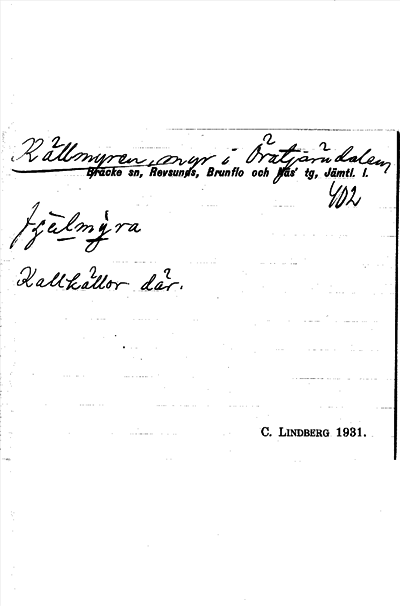 Källmyren, myr i Öratjärndalen
Bräcke sn, Revsunds, Brunflo och Näs' tg, Jämtl. l.
402
Kallkällor där.
C. LINDBERG 1931.